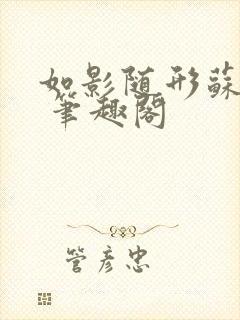 如影随形蘇
笔趣阁
管彦忠